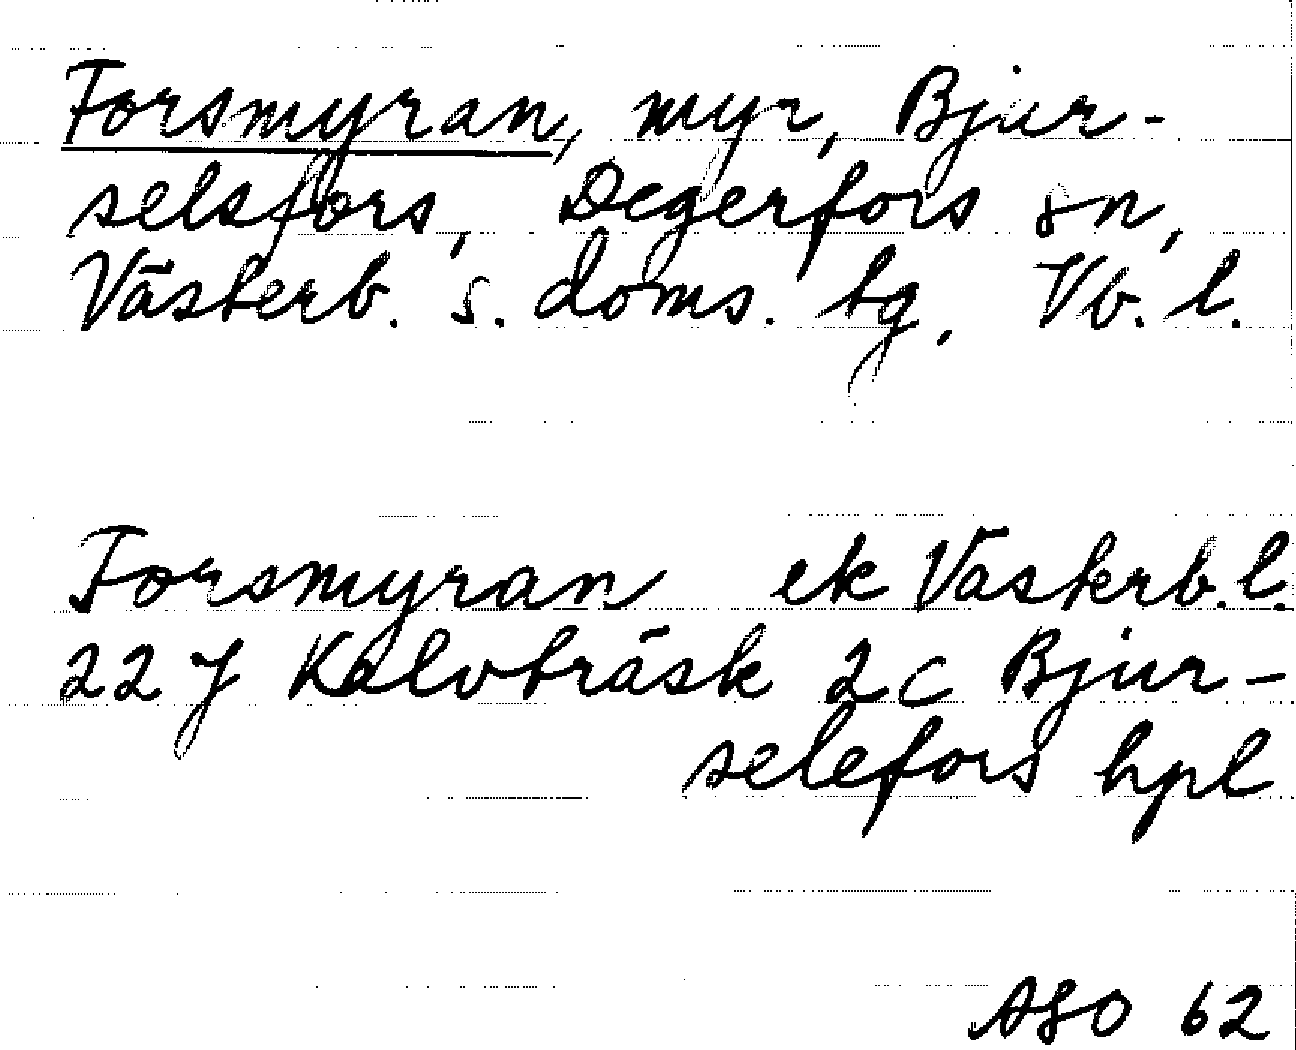 Forsmyran, myr, Bjur-
selsfors, Degerfors sn,
Västerb. s. doms. tg. Vb. l.
Forsmyran ek Västerb. l.
22 J Kalvträsk 2 c Bjur-
selefors hpl
ASO 62